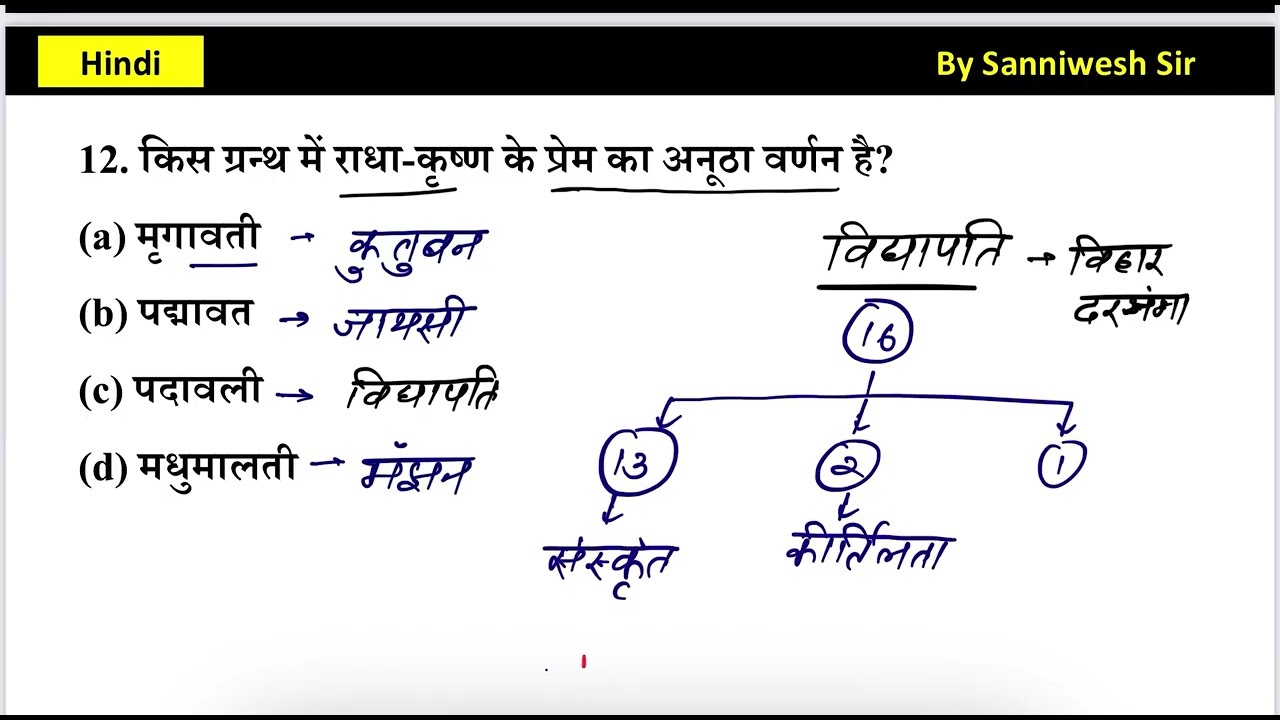 Hindi
By Sanniwesh Sir
12. किस ग्रन्थ में राधा-कृष्ण के प्रेम का अनूठा वर्णन है?
(a) मृगावती → कुतुबन
(b) पद्मावत → जायसी
(c) पदावली → विद्यापति
(d) मधुमालती → मंझन
विद्यापति → विहार
दरभंगा
16
13 2 1
संस्कृत कीर्तिलता